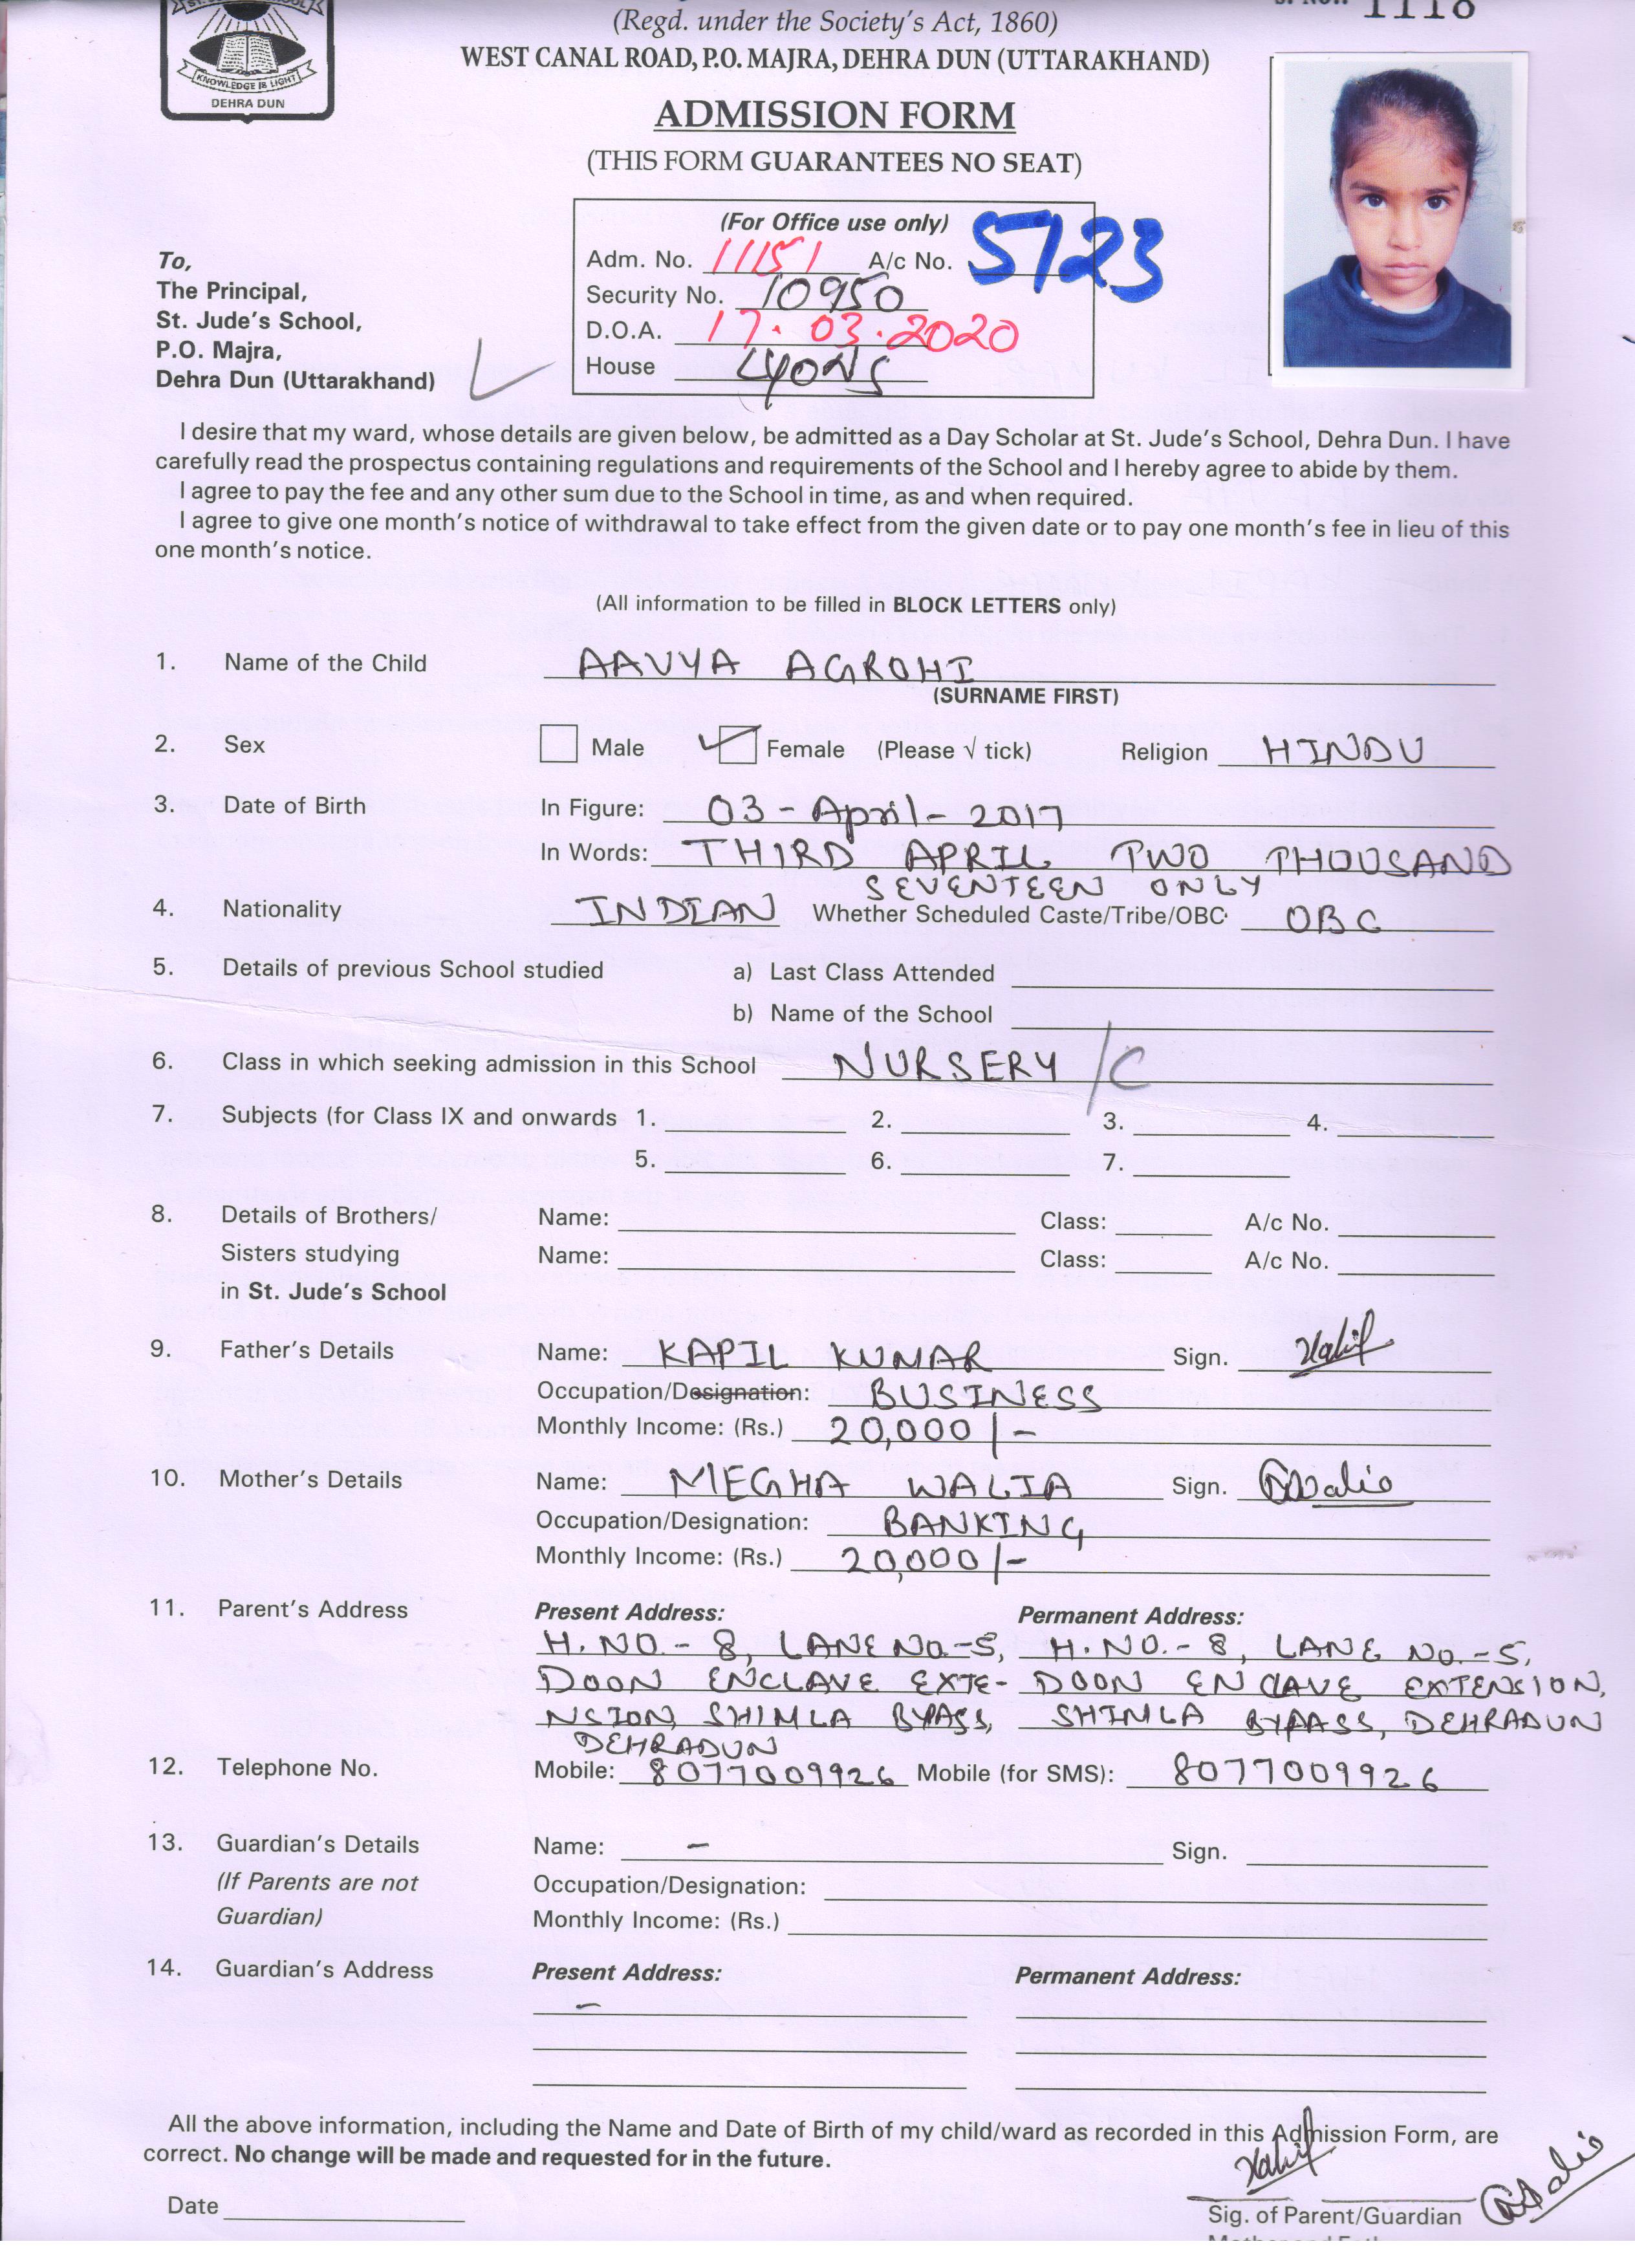 KNOWLEDGE IS LIGHT
DEHRA DUN
(Regd. under the Society's Act, 1860)
1118
WEST CANAL ROAD, P.O. MAJRA, DEHRA DUN (UTTARAKHAND)
ADMISSION FORM
(THIS FORM GUARANTEES NO SEAT)
(For Office use only)
Adm. No. 11151 A/c No. 5123
Security No. 10950
D.O.A. 17.03.2020
House Lyons
To,
The Principal,
St. Jude's School,
P.O. Majra,
Dehra Dun (Uttarakhand)
I desire that my ward, whose details are given below, be admitted as a Day Scholar at St. Jude's School, Dehra Dun. I have
carefully read the prospectus containing regulations and requirements of the School and I hereby agree to abide by them.
I agree to pay the fee and any other sum due to the School in time, as and when required.
I agree to give one month's notice of withdrawal to take effect from the given date or to pay one month's fee in lieu of this
one month's notice.
(All information to be filled in BLOCK LETTERS only)
1. Name of the Child AAVYA AGROHI
(SURNAME FIRST)
2. Sex Male Female (Please √ tick) Religion HINDU
3. Date of Birth In Figure: 03-April-2017
In Words: THIRD APRIL TWO THOUSAND
SEVENTEEN ONLY
4. Nationality INDIAN Whether Scheduled Caste/Tribe/OBC OBC
5. Details of previous School studied a) Last Class Attended
b) Name of the School
6. Class in which seeking admission in this School NURSERY /C
7. Subjects (for Class IX and onwards 1. 2. 3. 4.
5. 6. 7.
8. Details of Brothers/ Name: Class: A/c No.
Sisters studying Name: Class: A/c No.
in St. Jude's School
9. Father's Details Name: KAPIL KUMAR Sign.
Occupation/Designation: BUSINESS
Monthly Income: (Rs.) 20,000/-
10. Mother's Details Name: MEGHA WALIA Sign. Walia
Occupation/Designation: BANKING
Monthly Income: (Rs.) 20,000/-
11. Parent's Address Present Address: Permanent Address:
H.NO.-8, LANE NO.-5, H.NO.-8, LANE No.-5,
DOON ENCLAVE EXTE- DOON ENCLAVE EXTENSION,
NSION, SHIMLA BYPASS, SHIMLA BYPASS, DEHRADUN
DEHRADUN
12. Telephone No. Mobile: 8077009926 Mobile (for SMS): 8077009926
13. Guardian's Details Name: - Sign.
(If Parents are not Occupation/Designation:
Guardian) Monthly Income: (Rs.)
14. Guardian's Address Present Address: Permanent Address:
-
All the above information, including the Name and Date of Birth of my child/ward as recorded in this Admission Form, are
correct. No change will be made and requested for in the future.
Date
Sig. of Parent/Guardian